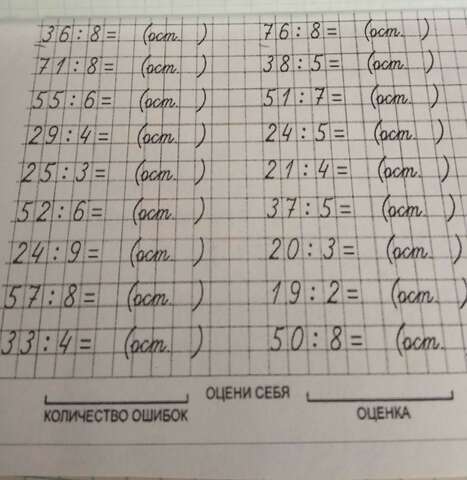 36:8= (ост. ) 76:8= (ост. )
71:8= (ост. ) 38:5= (ост. )
55:6= (ост. ) 51:7= (ост. )
29:4= (ост. ) 24:5= (ост. )
25:3= (ост. ) 21:4= (ост. )
52:6= (ост. ) 37:5= (ост. )
24:9= (ост. ) 20:3= (ост. )
57:8= (ост. ) 19:2= (ост. )
33:4= (ост. ) 50:8= (ост.
ОЦЕНИ СЕБЯ
КОЛИЧЕСТВО ОШИБОК ОЦЕНКА